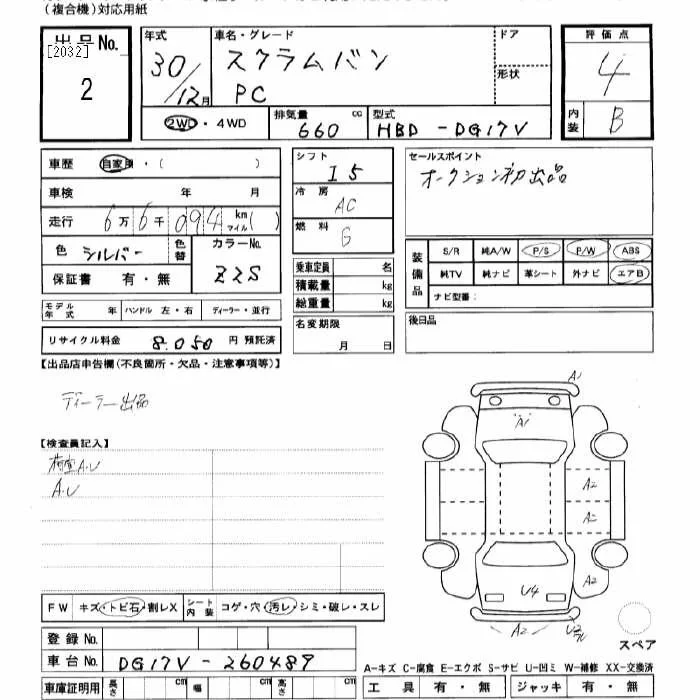 (複合機)対応用紙
出品No.
[2032]
2
年式
30/12月
車名・グレード
スクラムバン
PC
ドア
形状
評価点
4
内装
B
2WD・4WD
排気量
660
cc
型式
HBD-DG17V
車歴
自家用・(　　　)
車検
年　月
走行
6万6千094
km
マイル
( )
色
シルバー
色替
カラーNo.
Z2S
保証書　有・無
モデル年式　年
ハンドル　左・右
ディーラー・並行
リサイクル料金　8.050　円 預託済
シフト
I5
冷房
AC
燃料
G
乗車定員　名
積載量　kg
総重量　kg
名変期限
月　日
セールスポイント
オークション初出品
装備品
S/R
純A/W
P/S
P/W
ABS
純TV
純ナビ
革シート
外ナビ
エアB
ナビ型番：
後日品
【出品店申告欄(不良箇所・欠品・注意事項等)】
ディーラー出品
【検査員記入】
荷室A.U
A.U
A1
A1
A2
A2
A2
U4
A2
スペア
FW
キズ・トビ石・割レX
シート内装
コゲ・穴・汚レ・シミ・破レ・スレ
登録No.
車台No.
DG17V-260489
A-キズ C-腐食 E-エクボ S-サビ U-凹ミ W-補修 XX-交換済
車庫証明用
長さ
cm
幅
cm
高さ
cm
工具　有・無
ジャッキ　有・無